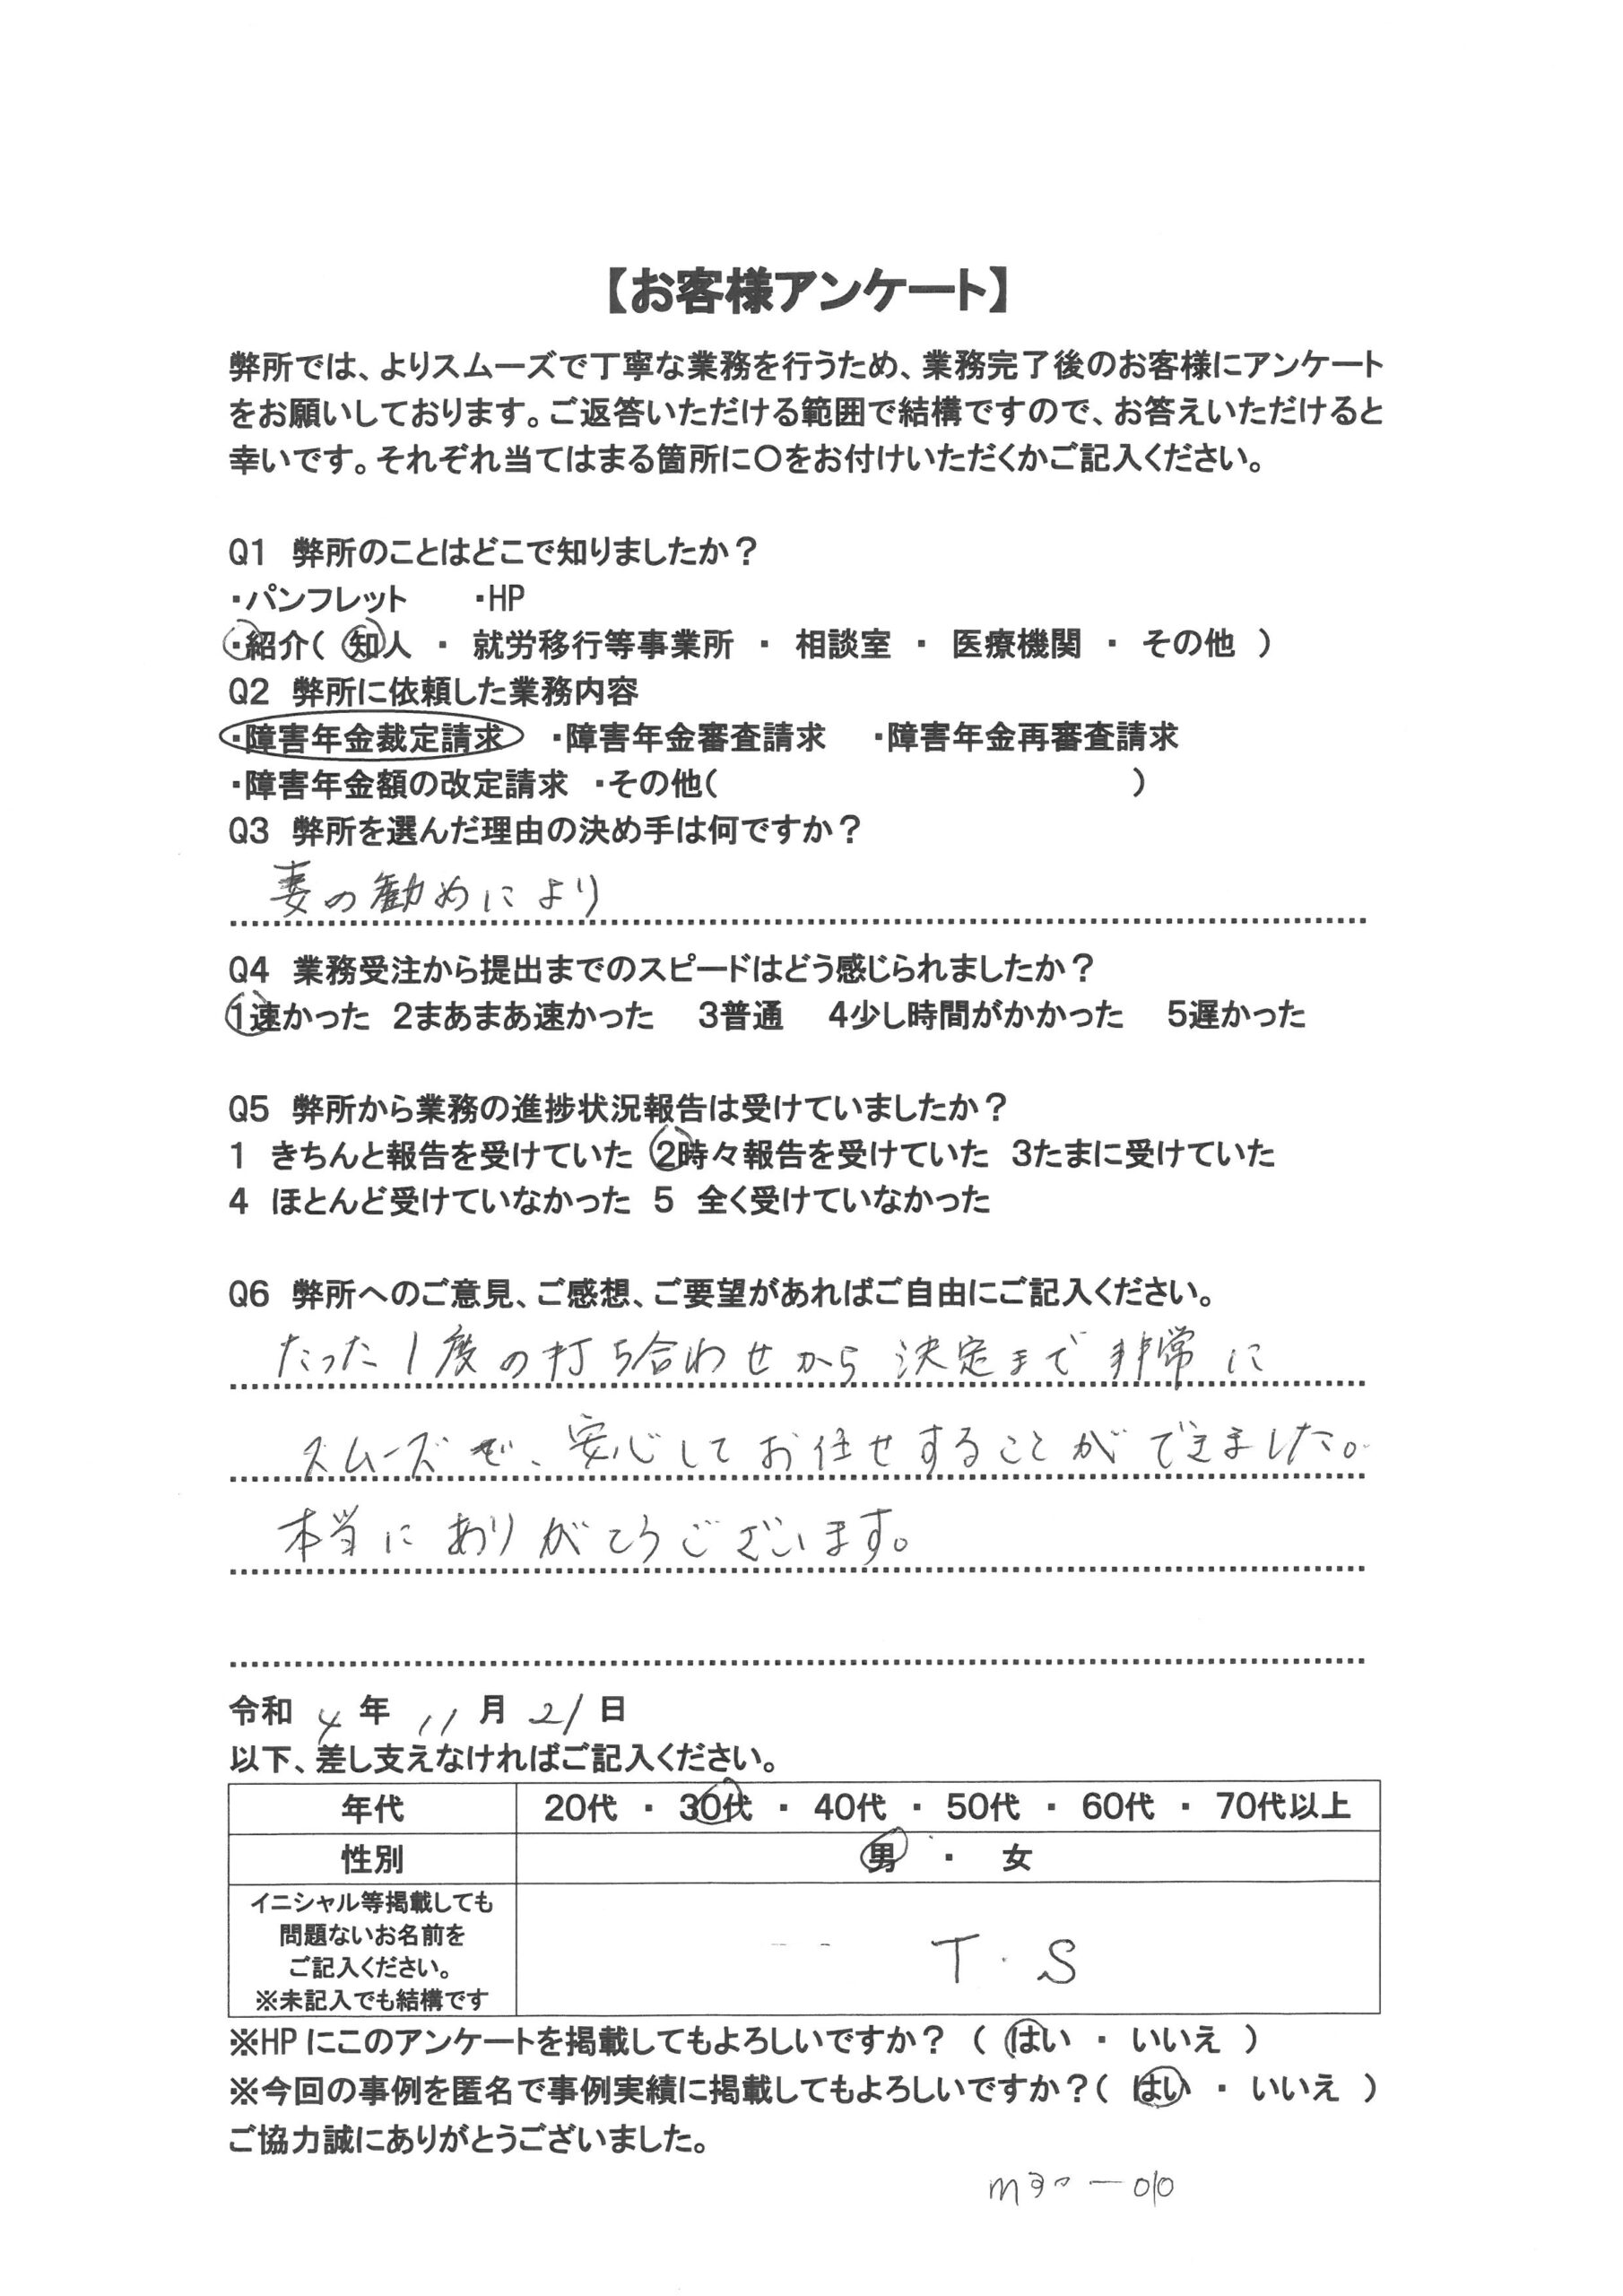 【お客様アンケート】
弊所では、よりスムーズで丁寧な業務を行うため、業務完了後のお客様にアンケート
をお願いしております。ご返答いただける範囲で結構ですので、お答えいただけると
幸いです。それぞれ当てはまる箇所に〇をお付けいただくかご記入ください。
Q1 弊所のことはどこで知りましたか？
・パンフレット ・HP
・紹介( 知人 ・ 就労移行等事業所 ・ 相談室 ・ 医療機関 ・ その他 )
Q2 弊所に依頼した業務内容
・障害年金裁定請求 ・障害年金審査請求 ・障害年金再審査請求
・障害年金額の改定請求 ・その他( )
Q3 弊所を選んだ理由の決め手は何ですか？
妻の勧めにより
Q4 業務受注から提出までのスピードはどう感じられましたか？
1速かった 2まあまあ速かった 3普通 4少し時間がかかった 5遅かった
Q5 弊所から業務の進捗状況報告は受けていましたか？
1 きちんと報告を受けていた 2時々報告を受けていた 3たまに受けていた
4 ほとんど受けていなかった 5 全く受けていなかった
Q6 弊所へのご意見、ご感想、ご要望があればご自由にご記入ください。
たった1度の打ち合わせから決定まで非常に
スムーズで、安心してお任せすることができました。
本当にありがとうございます。
令和 4 年 11 月 21 日
以下、差し支えなければご記入ください。
年代 20代 ・ 30代 ・ 40代 ・ 50代 ・ 60代 ・ 70代以上
性別 男 ・ 女
イニシャル等掲載しても
問題ないお名前を
ご記入ください。
※未記入でも結構です
T・S
※HPにこのアンケートを掲載してもよろしいですか？ ( はい ・ いいえ )
※今回の事例を匿名で事例実績に掲載してもよろしいですか？( はい ・ いいえ )
ご協力誠にありがとうございました。